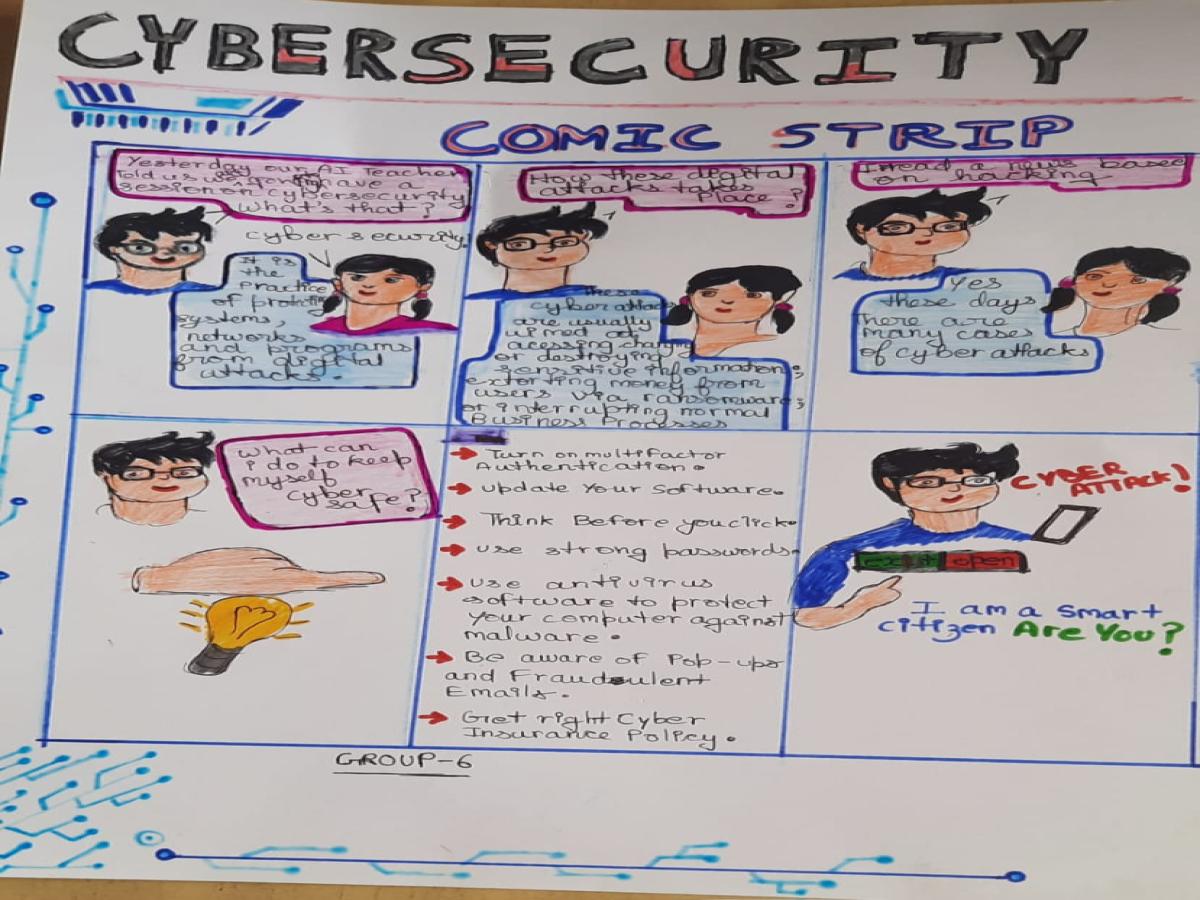 CYBERSECURITY
COMIC STRIP
Yesterday our AI Teacher
Told us we have a
session on cybersecurity
What's that?
cybersecurity
It is
the
Practice
of
systems,
networks
and programs
from digital
attacks.
How these degital
attacks takes
Place?
These
cyber attacks
are usually
aimed at
acessing
or destroying
sensitive information;
extorting money from
users via ransomware;
or interrupting normal
Business Processes
I read a news based
on hacking
Yes
these days
There are
many cases
of cyber attacks
What can
i do to keep
myself
cyber
safe?
Turn on multifactor
Authentication.
update Your Software.
Think Before you click.
use strong passwords.
use antivirus
software to protect
Your computer against
malware.
Be aware of Pop-ups
and Fraudulent
Emails.
Get right Cyber
Insurance Policy.
CYBER
ATTACK!
open
I am a smart
citizen Are You?
GROUP-6